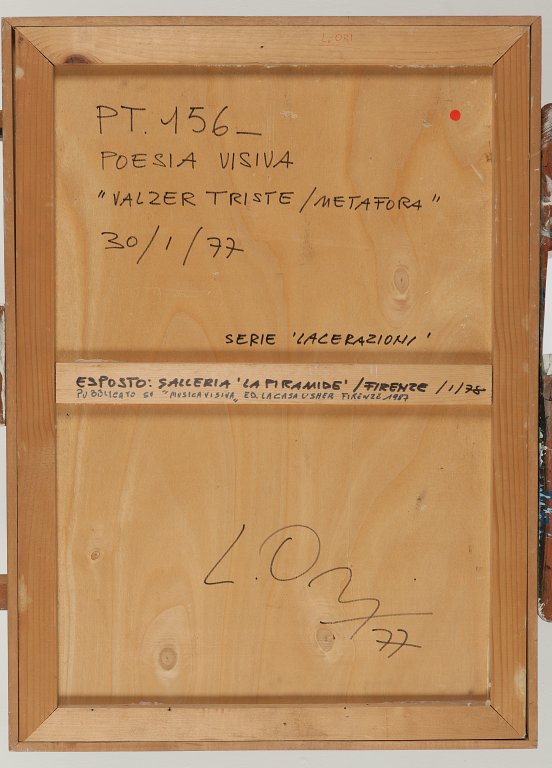 L. ORI
PT. 156_
POESIA VISIVA
"VALZER TRISTE / METAFORA"
30/1/77
SERIE 'LACERAZIONI'
ESPOSTO: GALLERIA 'LA PIRAMIDE' / FIRENZE /1/78
PUBBLICATO SU "MUSICA VISIVA" ED. LA CASA USHER FIRENZE 1987
L. Ori
77